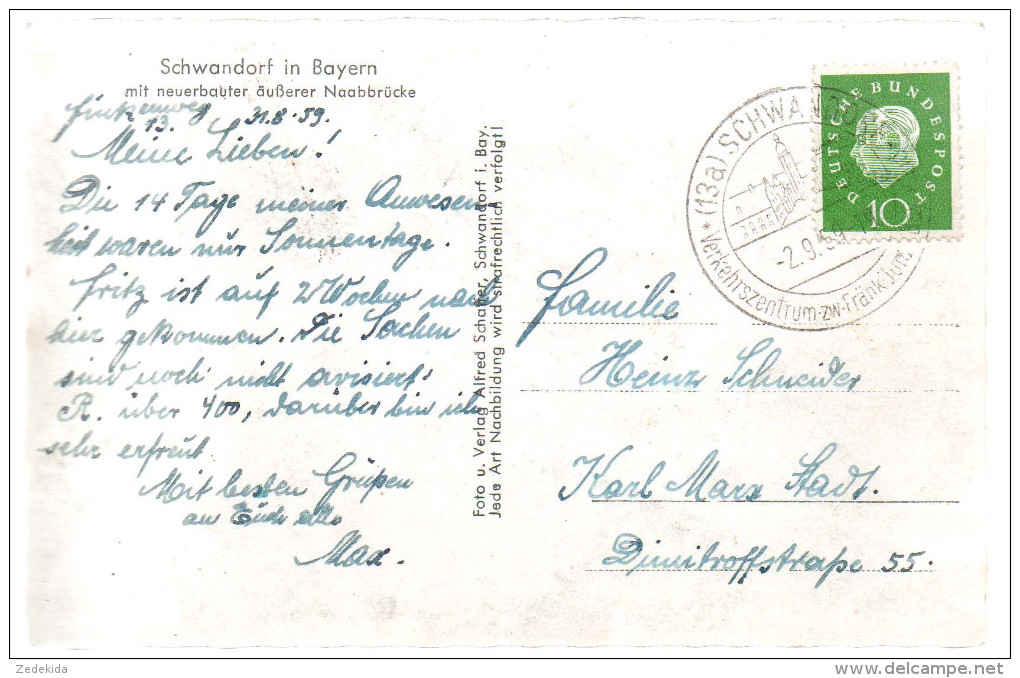 Schwandorf in Bayern
mit neuerbauter äußerer Naabbrücke
Finkenweg 31.8.59.
13.
Meine Lieben!
Die 14 Tage meiner Anwesen-
heit waren nur Sonnentage.
Fritz ist auf 2 Wochen nach
hier gekommen. Die Sachen
sind noch nicht avisiert.
R. über 400, darüber bin ich
sehr erfreut
Mit besten Grüßen
an Euch alle
Max.
Foto u. Verlag Alfred Schaffer, Schwandorf i. Bay.
Jede Art Nachbildung wird strafrechtlich verfolgt!
DEUTSCHE BUNDESPOST
10
(13a) SCHWANDORF
-2.9.59
Verkehrszentrum·zw·Fränk·Jura
Familie
Heinz Schneider
Karl Marx Stadt.
Dimitroffstraße 55.
Zedekida
delcampe.net